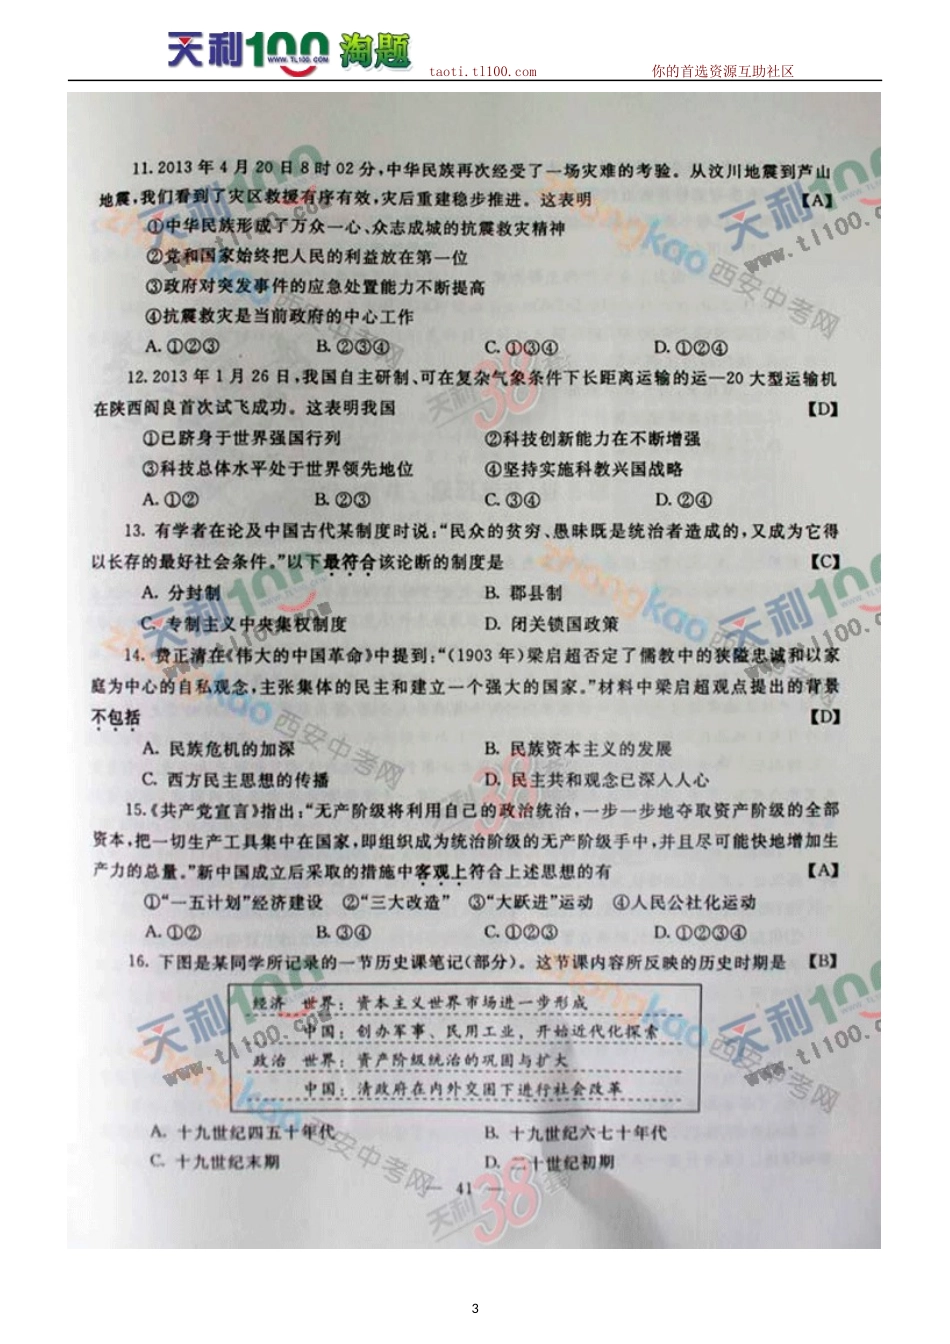 天利100 淘题
WWW.TL100.COM
taoti.tl100.com 你的首选资源互助社区
11.2013 年 4 月 20 日 8 时 02 分,中华民族再次经受了一场灾难的考验。从汶川地震到芦山
地震,我们看到了灾区救援有序有效,灾后重建稳步推进。这表明 【A】
①中华民族形成了万众一心、众志成城的抗震救灾精神
②党和国家始终把人民的利益放在第一位
③政府对突发事件的应急处置能力不断提高
④抗震救灾是当前政府的中心工作
A. ①②③ B. ②③④ C. ①③④ D. ①②④
12.2013 年 1 月 26 日,我国自主研制、可在复杂气象条件下长距离运输的运—20 大型运输机
在陕西阎良首次试飞成功。这表明我国 【D】
①已跻身于世界强国行列 ②科技创新能力在不断增强
③科技总体水平处于世界领先地位 ④坚持实施科教兴国战略
A. ①② B. ②③ C. ③④ D. ②④
13. 有学者在论及中国古代某制度时说:“民众的贫穷、愚昧既是统治者造成的,又成为它得
以长存的最好社会条件。”以下最符合该论断的制度是 【C】
A. 分封制 B. 郡县制
C. 专制主义中央集权制度 D. 闭关锁国政策
14. 费正清在《伟大的中国革命》中提到:“(1903 年)梁启超否定了儒教中的狭隘忠诚和以家
庭为中心的自私观念,主张集体的民主和建立一个强大的国家。”材料中梁启超观点提出的背景
不包括 【D】
A. 民族危机的加深 B. 民族资本主义的发展
C. 西方民主思想的传播 D. 民主共和观念已深入人心
15.《共产党宣言》指出:“无产阶级将利用自己的政治统治,一步一步地夺取资产阶级的全部
资本,把一切生产工具集中在国家,即组织成为统治阶级的无产阶级手中,并且尽可能快地增加生
产力的总量。”新中国成立后采取的措施中客观上符合上述思想的有 【A】
①“一五计划”经济建设 ②“三大改造” ③“大跃进”运动 ④人民公社化运动
A. ①② B. ③④ C. ①②③ D. ①②③④
16. 下图是某同学所记录的一节历史课笔记(部分)。这节课内容所反映的历史时期是 【B】
经济 世界: 资本主义世界市场进一步形成
中国: 创办军事、民用工业, 开始近代化探索
政治 世界: 资产阶级统治的巩固与扩大
中国: 清政府在内外交困下进行社会改革
A. 十九世纪四五十年代 B. 十九世纪六七十年代
C. 十九世纪末期 D. 二十世纪初期
— 41 —
3